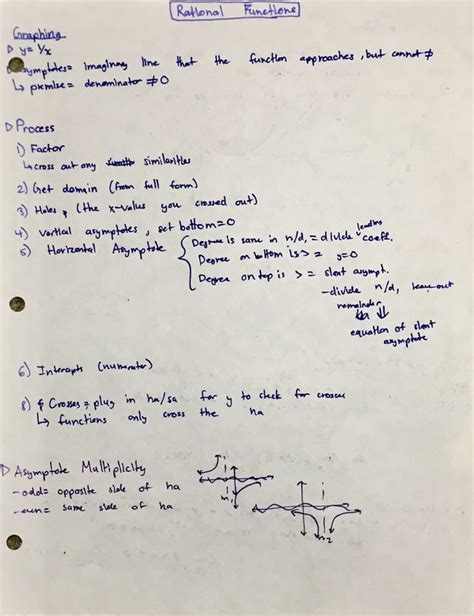 Rational Functions
Graphing
▷ y= 1/x
▷ Asymptotes= imaginary line that the function approaches, but cannot ≠
↳ premise= denominator ≠0
▷ Process
1) Factor
↳ cross out any similarities
2) Get domain (from full form)
3) Holes, (the x-value you crossed out)
4) Vertical asymptotes, set bottom=0
5) Horizontal Asymptote { Degree is same in n/d, = divide leading coeff.
Degree on bottom is > = y=0
Degree on top is > = slant asympt.
- divide n/d, leave out
remainder
equation of slant
asymptote
6) Intercepts (numerator)
8) Crosses= plug in ha/sa for y to check for crosses
↳ functions only cross the ha
▷ Asymptote Multiplicity
- odd= opposite side of ha
- even= same side of ha
m1
m2